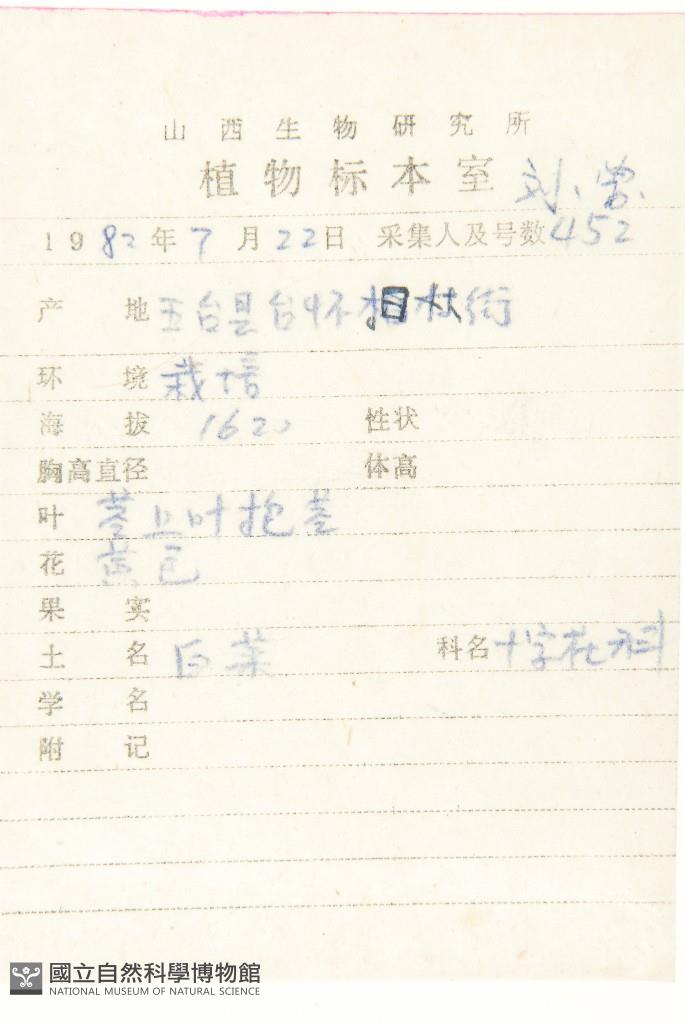 山西生物研究所
植物标本室 刘、
1982年7月22日 采集人及号数 452
产地 五台县台怀 街
环境 栽培
海拔 1620 性状
胸高直径 体高
叶 茎上叶抱茎
花 黄色
果实
土名 白菜 科名 十字花科
学名
附记
國立自然科學博物館
NATIONAL MUSEUM OF NATURAL SCIENCE